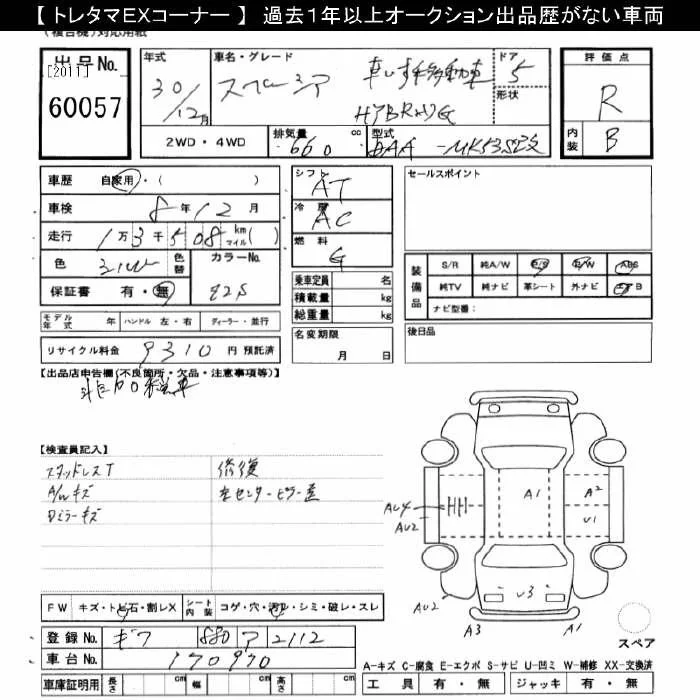 【 トレタマEXコーナー 】 過去1年以上オークション出品歴がない車両
出品No.
[2011]
60057
年式
30/12月
車名・グレード
スペーシア 車いす移動車
HYBRID G
ドア
5
形状
評価点
R
内装
B
2WD・4WD
排気量
660 cc
型式
DAA-MK53S改
車歴 自家用・( )
車検 8年12月
走行 1万3千508 km マイル( )
色 シルバー
色替
カラーNo.
Z2S
保証書 有・無
モデル年式 年 ハンドル 左・右 ディーラー・並行
リサイクル料金 9310 円 預託済
シフト
AT
冷房
AC
燃料
G
乗車定員 名
積載量 kg
総重量 kg
名変期限
月 日
セールスポイント
装備品
S/R 純A/W P/S P/W ABS
純TV 純ナビ 革シート 外ナビ エアB
ナビ型番:
後日品
【出品店申告欄(不良箇所・欠品・注意事項等)】
非課税車
【検査員記入】
スタッドレスT
A/Wキズ
Dミラーキズ
修復
左センターピラー歪
AU4
AU2
A1
A2
U1
AU2
U3
A3
A1
スペア
FW キズ・トビ石・割レX シート内装 コゲ・穴・汚レ・シミ・破レ・スレ
登録No. ギフ 880 ア 2112
車台No. 170970
車庫証明用 長さ cm 幅 cm 高さ cm
A-キズ C-腐食 E-エクボ S-サビ U-凹ミ W-補修 XX-交換済
工具 有・無 ジャッキ 有・無